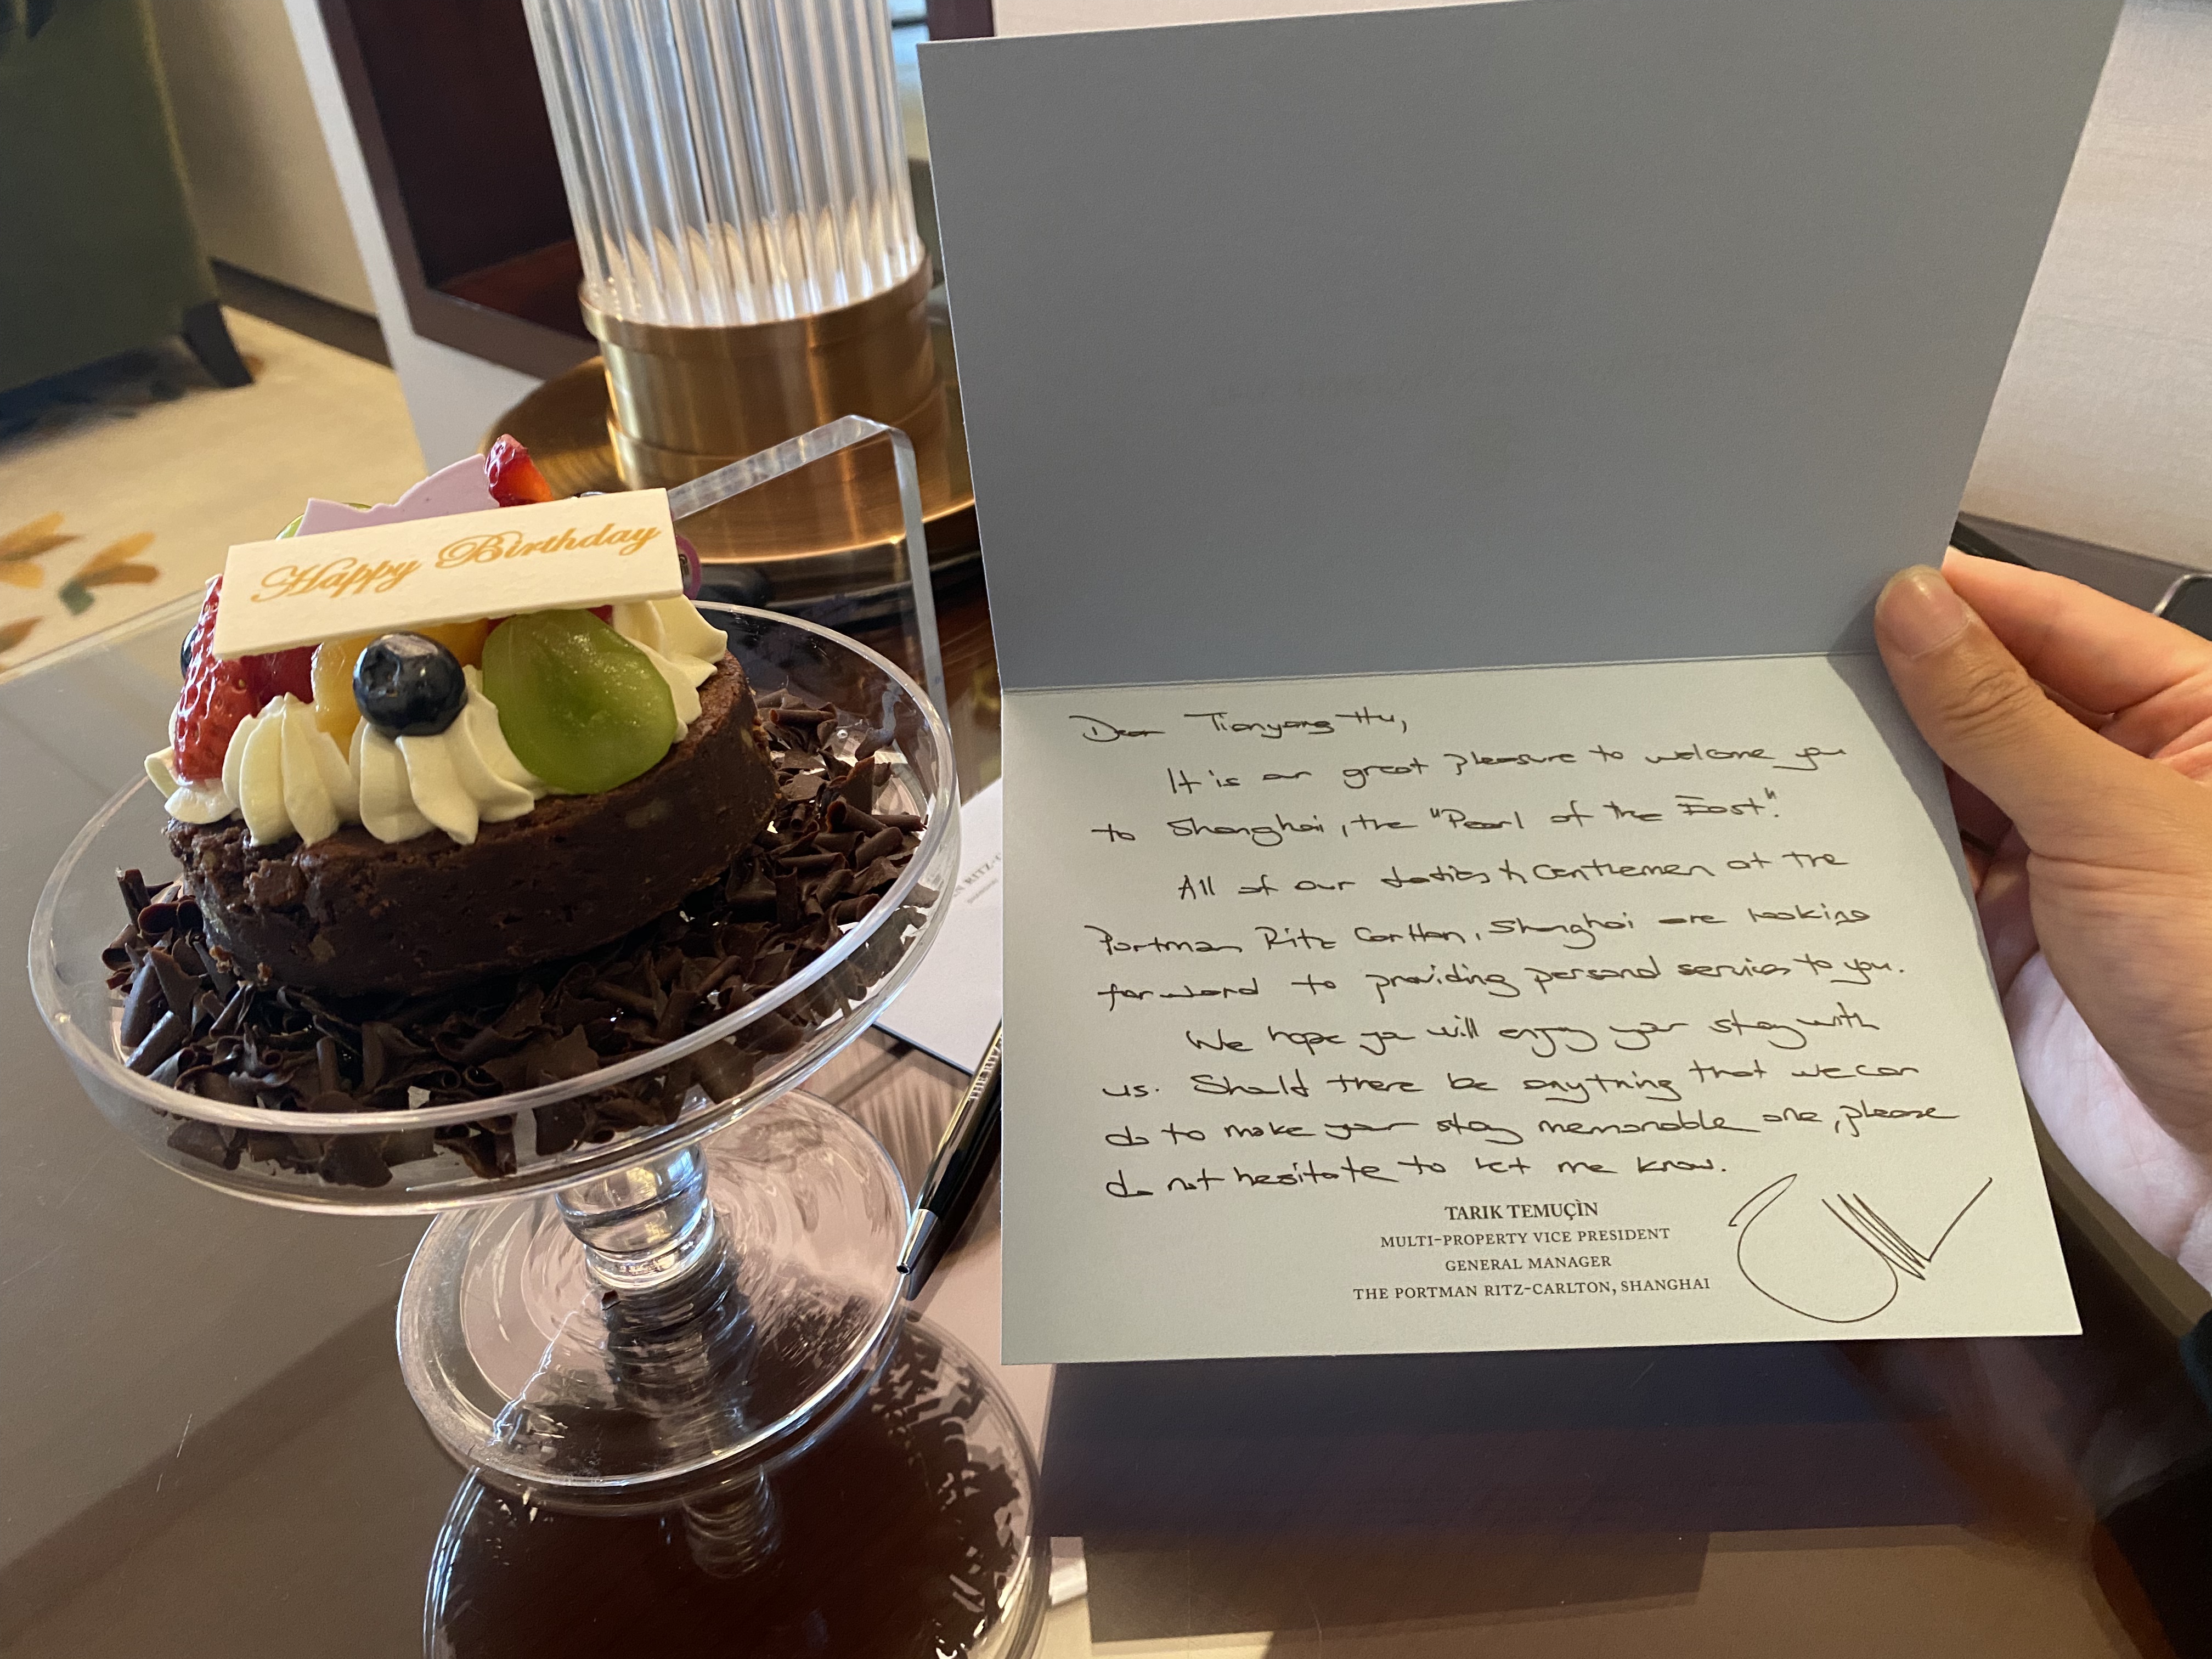 Happy Birthday
Dear Tianyang Hu,
It is our great pleasure to welcome you
to Shanghai, the "Pearl of the East".
All of our Ladies & Gentlemen at the
Portman Ritz Carlton, Shanghai are looking
forward to providing personal service to you.
We hope you will enjoy your stay with
us. Should there be anything that we can
do to make your stay memorable one, please
do not hesitate to let me know.
TARIK TEMUÇÌN
MULTI-PROPERTY VICE PRESIDENT
GENERAL MANAGER
THE PORTMAN RITZ-CARLTON, SHANGHAI